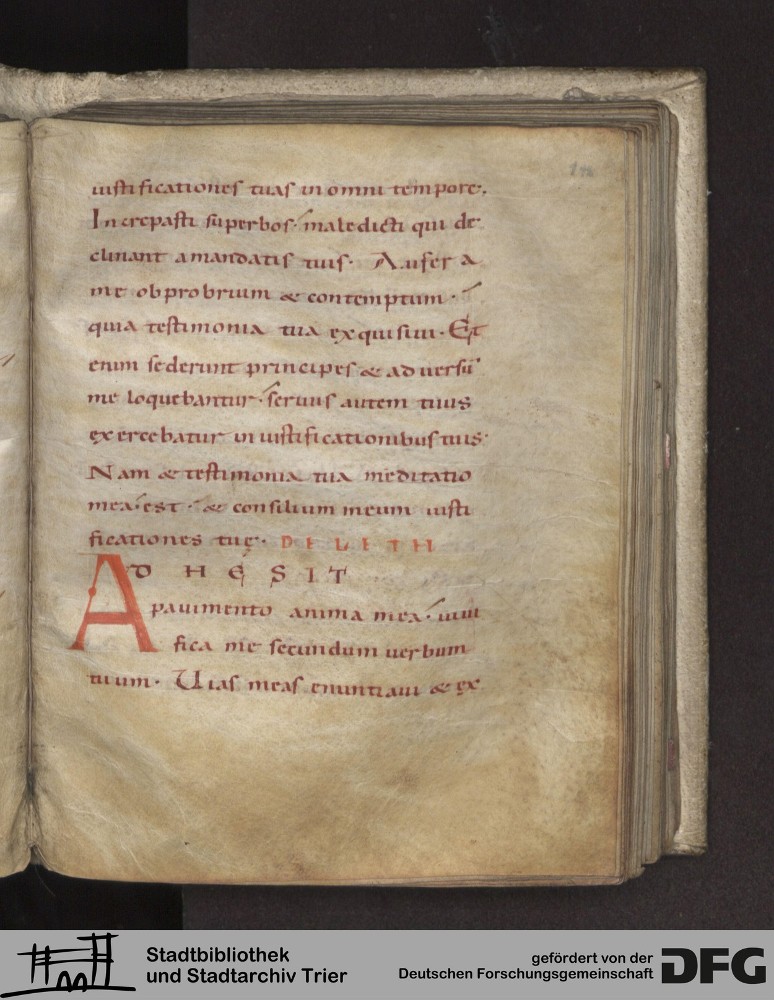 iustificationes tuas in omni tempore.
Increpasti superbos· maledicti qui de
clinant a mandatis tuis· Aufer a
me obprobrium & contemptum·
quia testimonia tua exquisiui· Et
enim sederunt principes & aduersū
me loquebantur· seruus autem tuus
exercebatur in iustificationibus tuis·
Nam & testimonia tua meditatio
mea est· & consilium meum iusti
ficationes tuę· DELETH
ADHĘSIT
pauimento anima mea· uiui
fica me secundum uerbum
tuum· Uias meas enuntiaui & ex
Stadtbibliothek
und Stadtarchiv Trier
gefördert von der
Deutschen Forschungsgemeinschaft
DFG